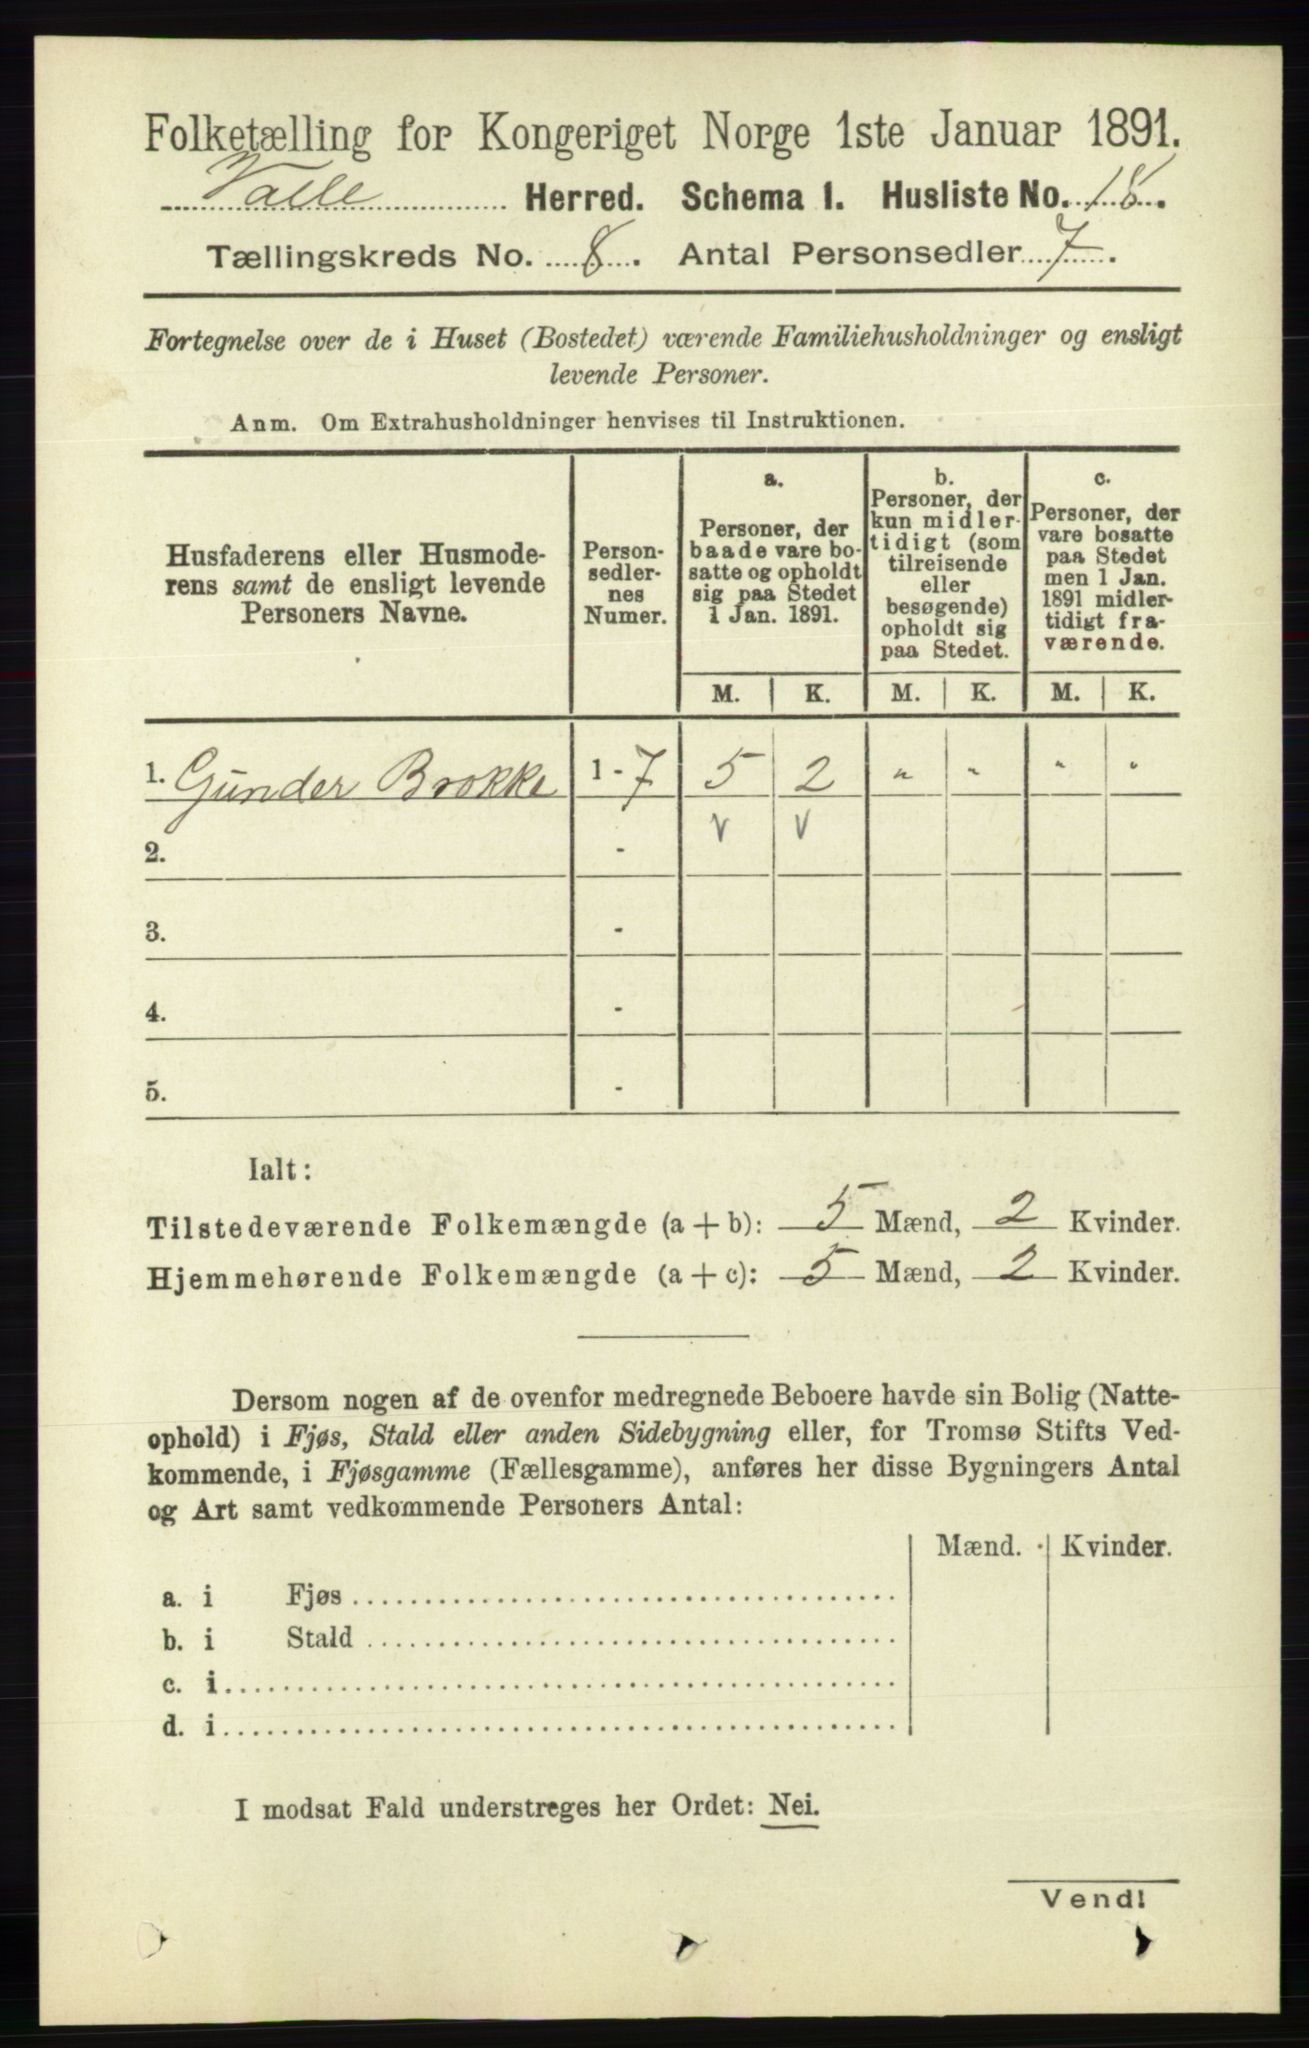 Folketælling for Kongeriget Norge 1ste Januar 1891.
Valle Herred. Schema 1. Husliste No. 18.
Tællingskreds No. 8. Antal Personsedler 7.
Fortegnelse over de i Huset (Bostedet) værende Familiehusholdninger og ensligt
levende Personer.
Anm. Om Extrahusholdninger henvises til Instruktionen.
Husfaderens eller Husmode-
rens samt de ensligt levende
Personers Navne.
Person-
sedler-
nes
Numer.
a.
Personer, der
baade vare bo-
satte og opholdt
sig paa Stedet
1 Jan. 1891.
b.
Personer, der
kun midler-
tidigt (som
tilreisende
eller
besøgende)
opholdt sig
paa Stedet.
c.
Personer, der
vare bosatte
paa Stedet
men 1 Jan.
1891 midler-
tidigt fra-
værende.
M. K. M. K. M. K.
1. Gunder Brokke 1-7 5 2 " " " "
2. - v v
3. -
4. -
5. -
Ialt:
Tilstedeværende Folkemængde (a + b): 5 Mænd, 2 Kvinder.
Hjemmehørende Folkemængde (a + c): 5 Mænd, 2 Kvinder.
Dersom nogen af de ovenfor medregnede Beboere havde sin Bolig (Natte-
ophold) i Fjøs, Stald eller anden Sidebygning eller, for Tromsø Stifts Ved-
kommende, i Fjøsgamme (Fællesgamme), anføres her disse Bygningers Antal
og Art samt vedkommende Personers Antal:
Mænd. Kvinder.
a. i Fjøs
b. i Stald
c. i
d. i
I modsat Fald understreges her Ordet: Nei.
Vend!